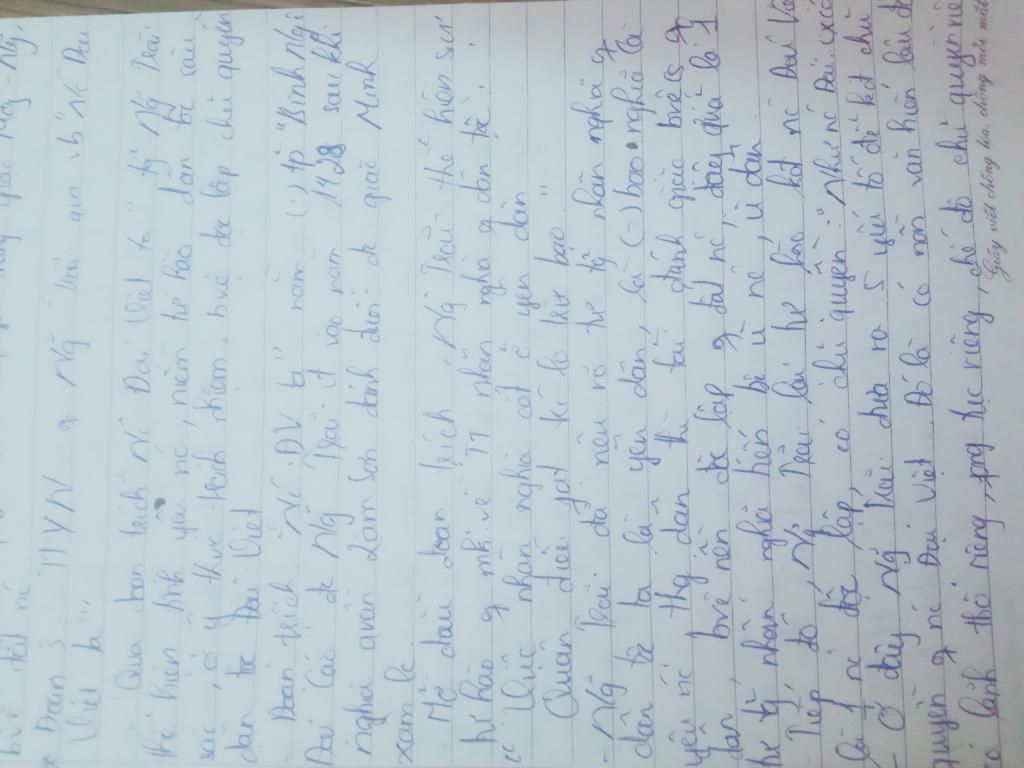 bvệ đất nc
* Đoạn 3 TTYN q Ng Trãi qua vb "Nc Đại
Việt ta".
Qua đoạn trích Nc Đại Việt ta" tg Ng Trãi
thể hiện tình yêu nc, niềm tự hào dân tộc sâu
sắc, ở ý thức trách nhiệm, bvệ độc lập chủ quyền
dân tộc Đại Việt
Đoạn trích "Nc ĐV ta" nằm (-) tp "Bình Ngô
Đại Cáo" đc Ng Trãi vào năm 1428 sau khi
nghĩa quân Lam Sơn đánh đuổi đc giặc Minh
xâm lc.
- Mở đầu đoạn trích, Ng Trãi thể hiện sự
tự hào q mk về TT nhân nghĩa q dân tộc:
"Việc nhân nghĩa cốt ở yên dân
Quân điếu phạt trc lo trừ bạo"
- Ng Trãi đã nêu rõ tư tg nhân nghĩa q
dân tộc ta là yên dân, là (-) bao nghĩa là
yêu nc thg dân thì phải đánh giặc bvệ q
dân, bvệ nền độc lập q đất nc,
tư tg nhân nghĩa tiến bộ vì nc, vì dân
- Tiếp đó, Ng Trãi lại tự hào kđ nc Đại Việt
là 1 nc độc lập, có chủ quyền: "Như nc Đại
- Ở đây Ng Trãi đưa ra 5 yếu tố để kđ chủ
quyền q nc Đại Việt. Đó là có nền văn hiến lâu đời
có lãnh thổ riêng, phg tục riêng, chế độ chủ quyền
Giấy viết chống lóa, chống mỏi mắt